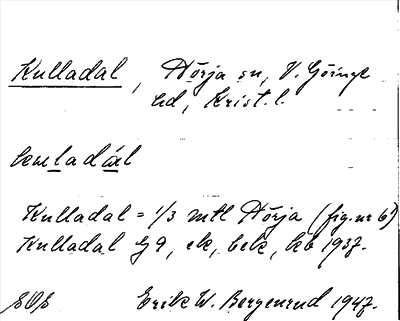 Kulladal, Nörja sn, V. Göinge
hd, Krist. l.
Kulladal = 1/3 mtl Nörja (fig. nr 6)
Kulladal Lg 9, ek, bek, kb 1937.
SOS Erik W. Bergenrud 1947.